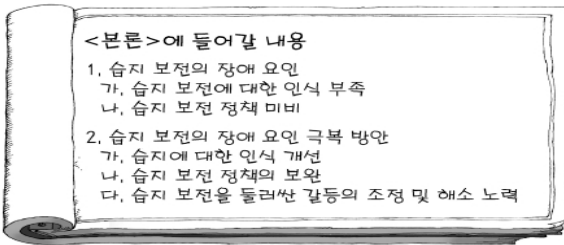 <본론>에 들어갈 내용
1. 습지 보전의 장애 요인
가. 습지 보전에 대한 인식 부족
나. 습지 보전 정책 미비
2. 습지 보전의 장애 요인 극복 방안
가. 습지에 대한 인식 개선
나. 습지 보전 정책의 보완
다. 습지 보전을 둘러싼 갈등의 조정 및 해소 노력